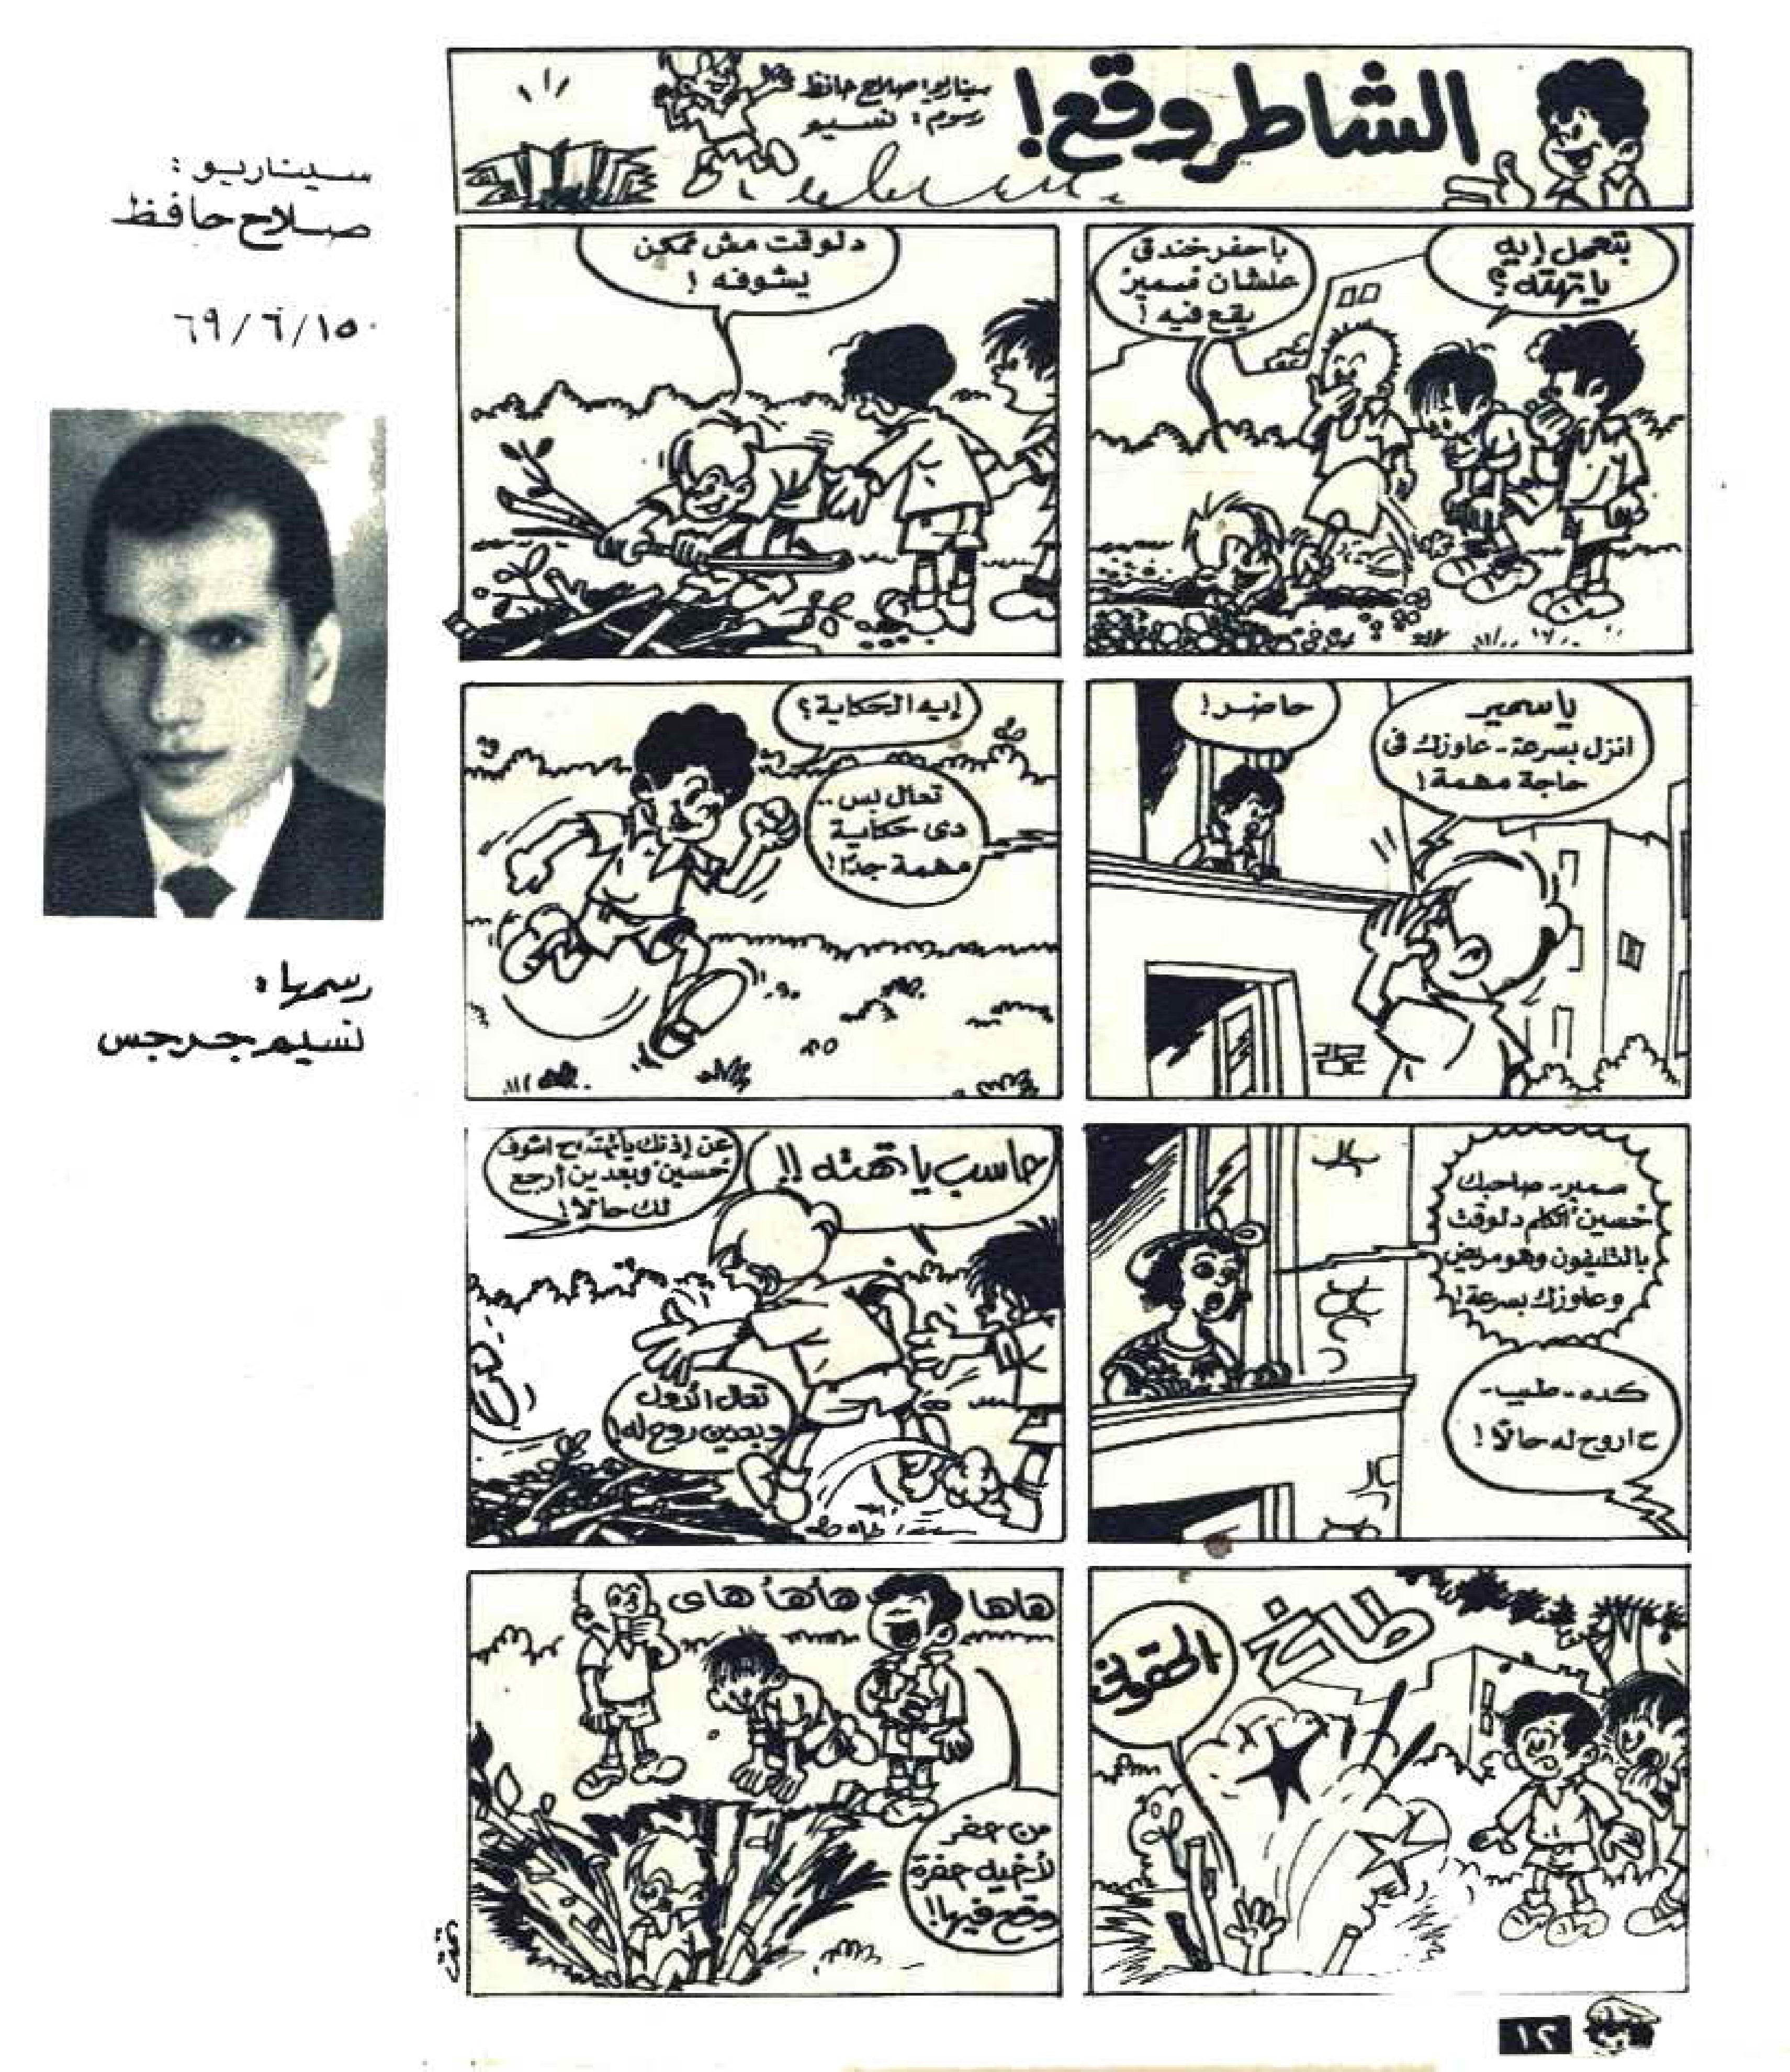 الشاطر وقع!
سيناريو: صلاح حافظ
رسوم: نسيم
سيناريو:
صلاح حافظ
٦٩/٦/١٥
رسمها:
نسيم جرجس
بتعمل إيه
يا تهته؟
باحفر خندق
علشان سمير
يقع فيه!
دلوقت مش ممكن
يشوفه!
ياسمير
انزل بسرعة - عاوزك في
حاجة مهمة!
حاضر!
إيه الحكاية؟
تعال بس..
دى حكاية
مهمة جدًا!
سمير - صاحبك
حسين اتكلم دلوقت
بالتليفون وهو مريض
وعاوزك بسرعة!
كده - طيب -
ح اروح له حالًا!
حاسب يا تهته!!
عن إذنك يا تهته ح اشوف
حسين وبعدين أرجع
لك حالًا!
تعال
وبعدين روح له!
طاخ
الحقونى
هاها هأهأ هاى
من حفر
لأخيه حفرة
وقع فيها!!
تمت
١٢